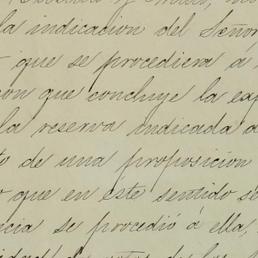 la indicacion del Señor
que se procediera á
ion que concluye la esp
la reserva indicada a
to de una proposicion
o que en este sentido se
cia se procedió á ella,